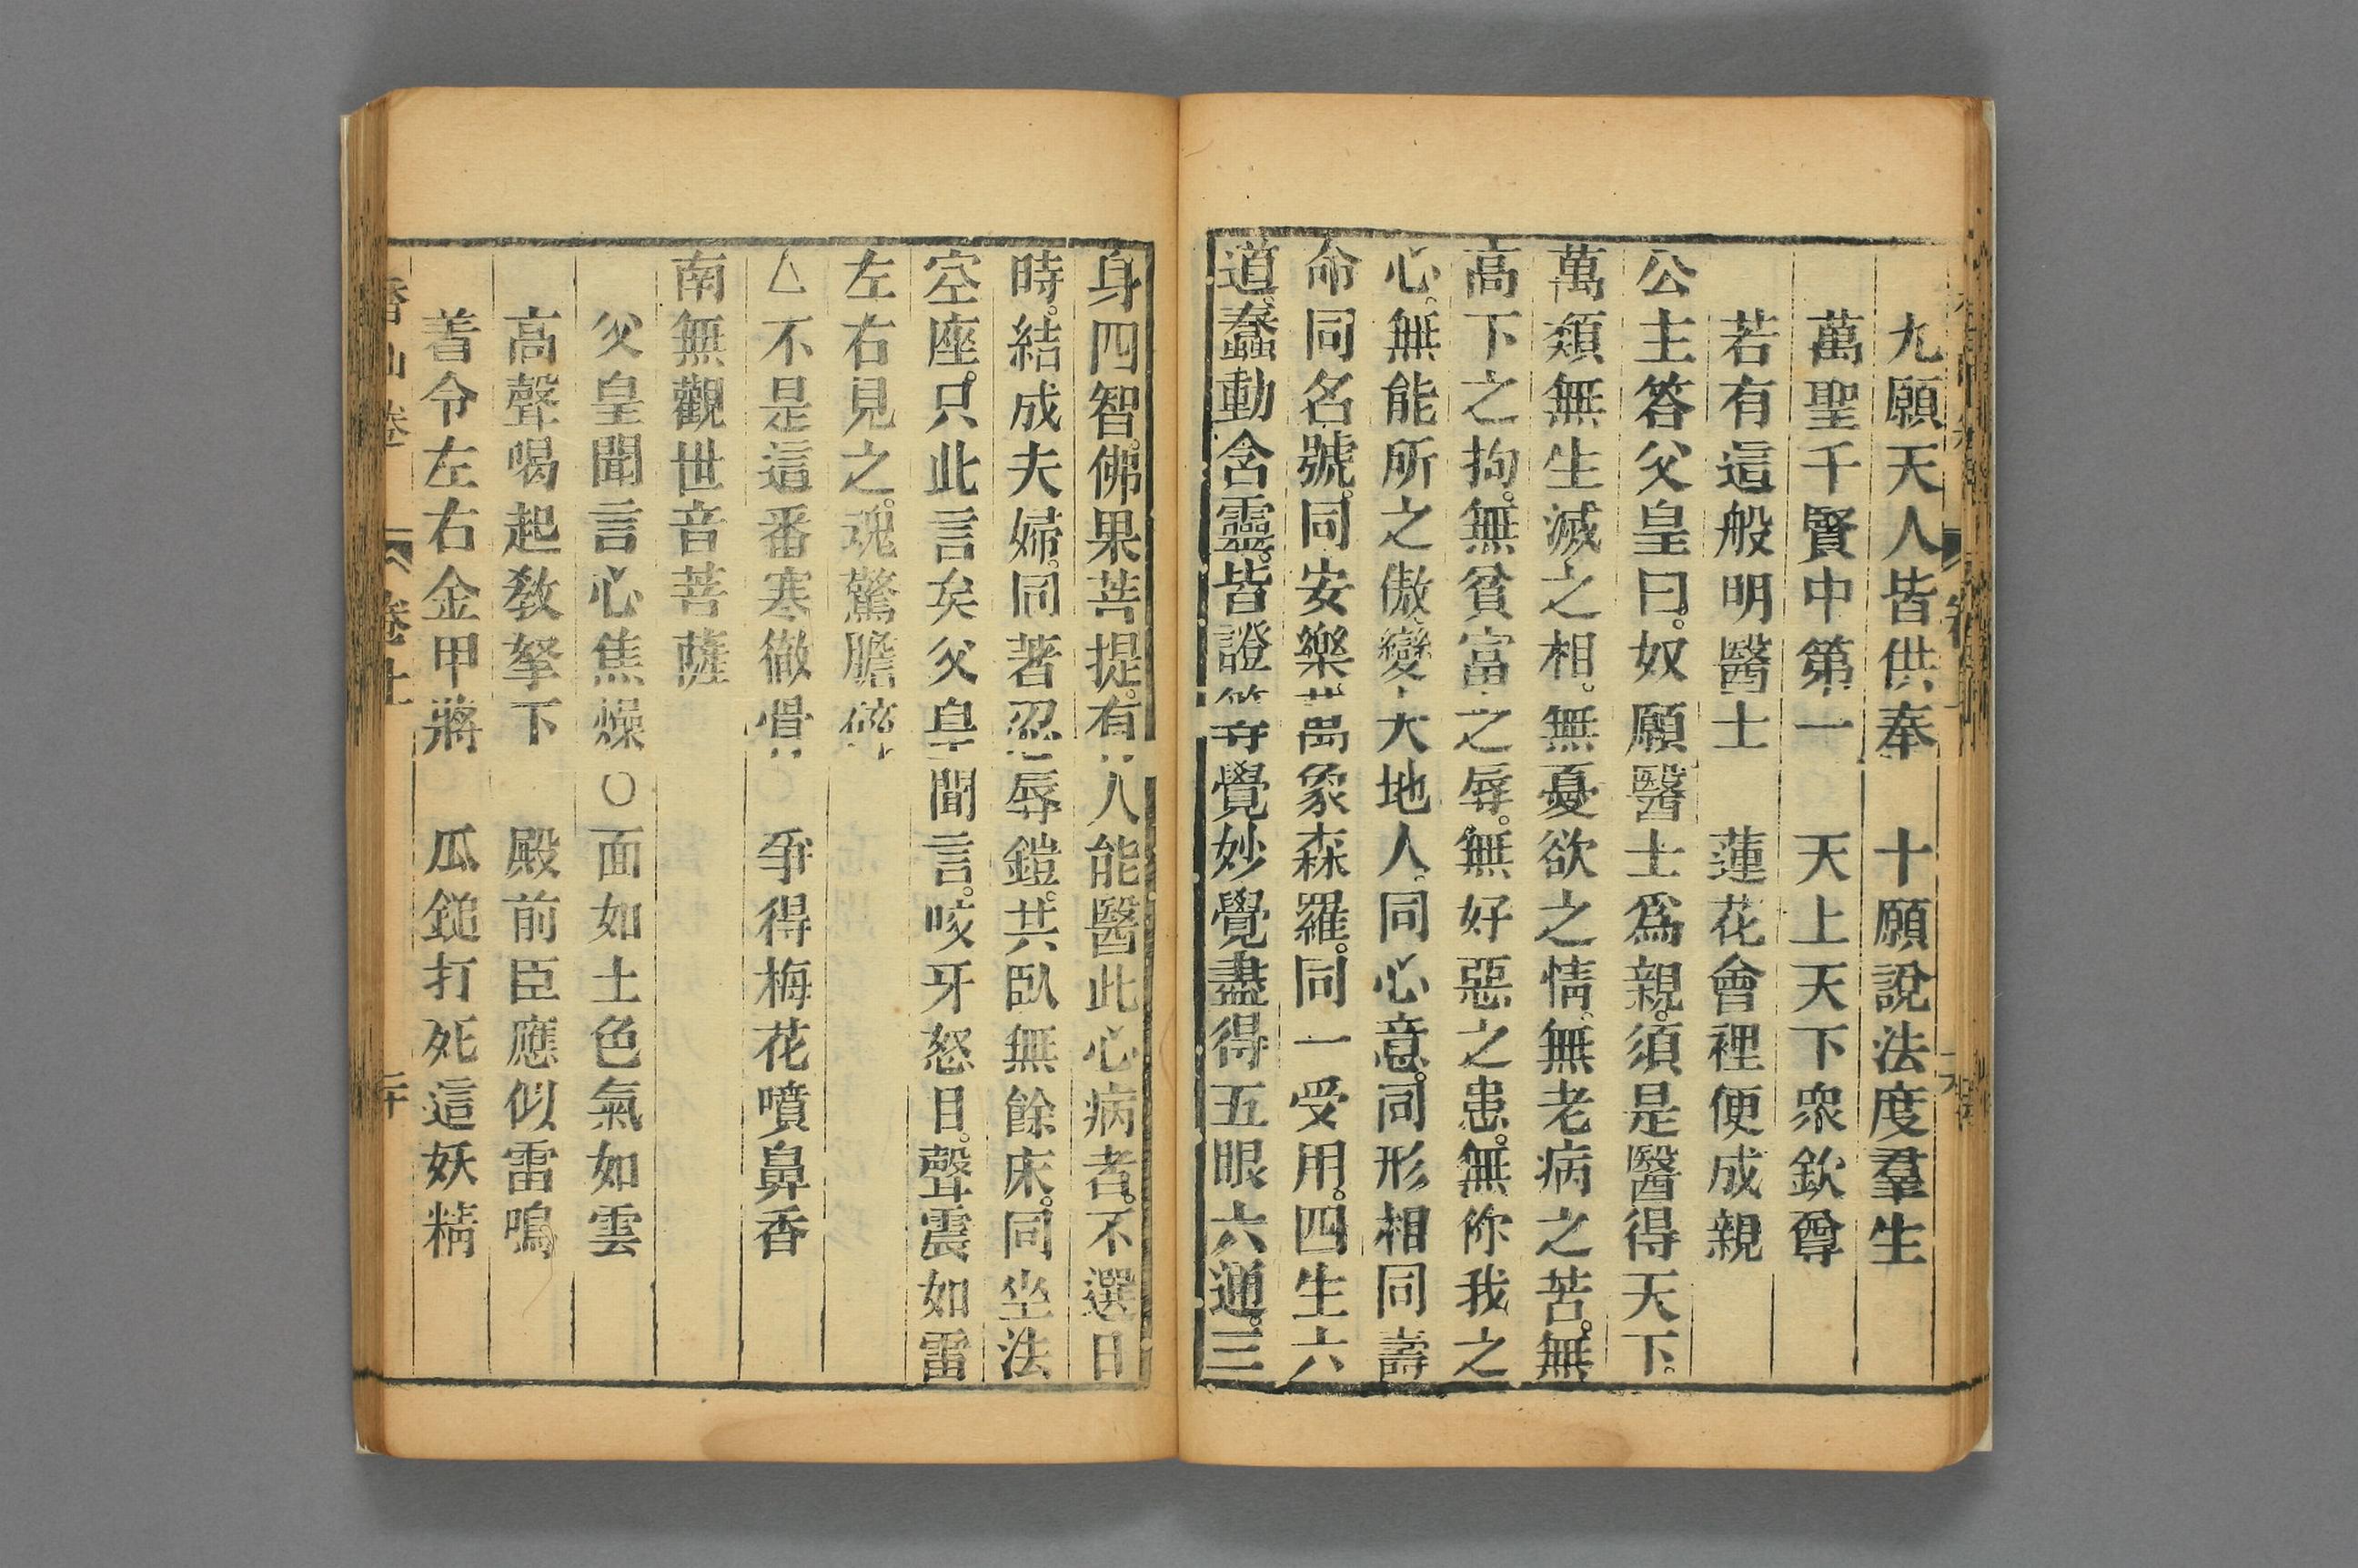 九願天人皆供奉　十願說法度羣生
萬聖千賢中第一　天上天下衆欽尊
若有這般明醫士　蓮花會裡便成親
公主答父皇曰。奴願醫士爲親。須是醫得天下。
萬類無生滅之相。無憂欲之情。無老病之苦。無
高下之拘。無貧富之辱。無好惡之患。無你我之
心。無能所之傲。變大地人。同心意。同形相同壽
命同名號。同安樂萬象森羅。同一受用。四生六
道。蠢動含靈。皆證等覺妙覺盡得五眼六通。三
身四智。佛果菩提。有人能醫此心病者。不選日
時。結成夫婦。同著忍辱鎧。共臥無餘床。同坐法
空座。只此言矣父皇聞言。咬牙怒目。聲震如雷
左右見之。魂驚膽碎
△不是這番寒徹骨　爭得梅花噴鼻香
南無觀世音菩薩
父皇聞言心焦燥○面如土色氣如雲
高聲喝起敎拏下　殿前臣應似雷鳴
善令左右金甲將　瓜鎚打死這妖精
香山卷　卷上　二十